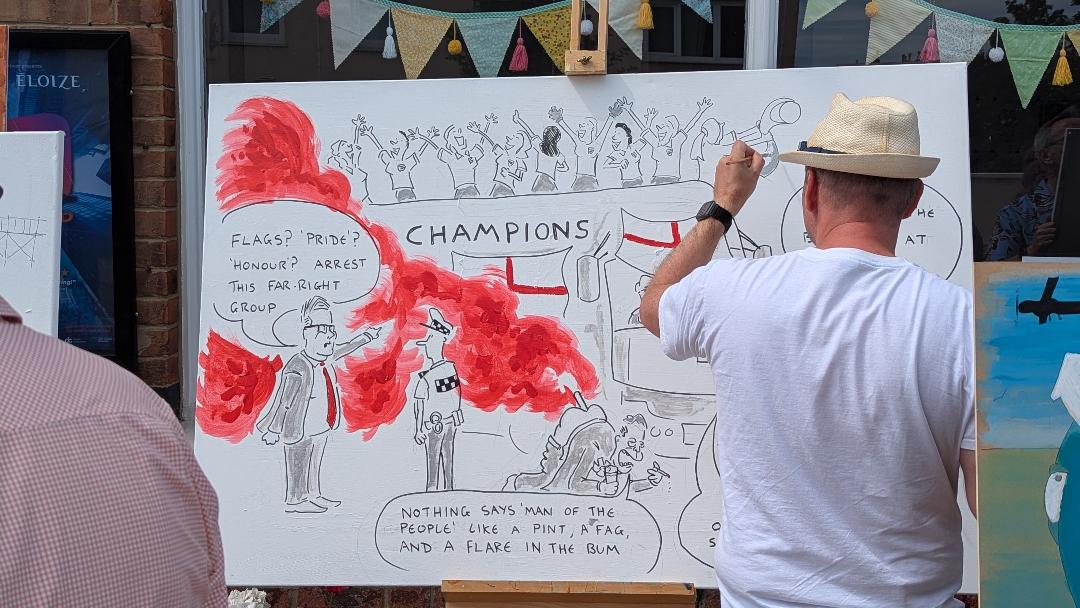 ÉLOIZE
CHAMPIONS
FLAGS? 'PRIDE'?
'HONOUR'? ARREST
THIS FAR-RIGHT
GROUP
HE
AT
NOTHING SAYS 'MAN OF THE
PEOPLE' LIKE A PINT, A FAG,
AND A FLARE IN THE BUM